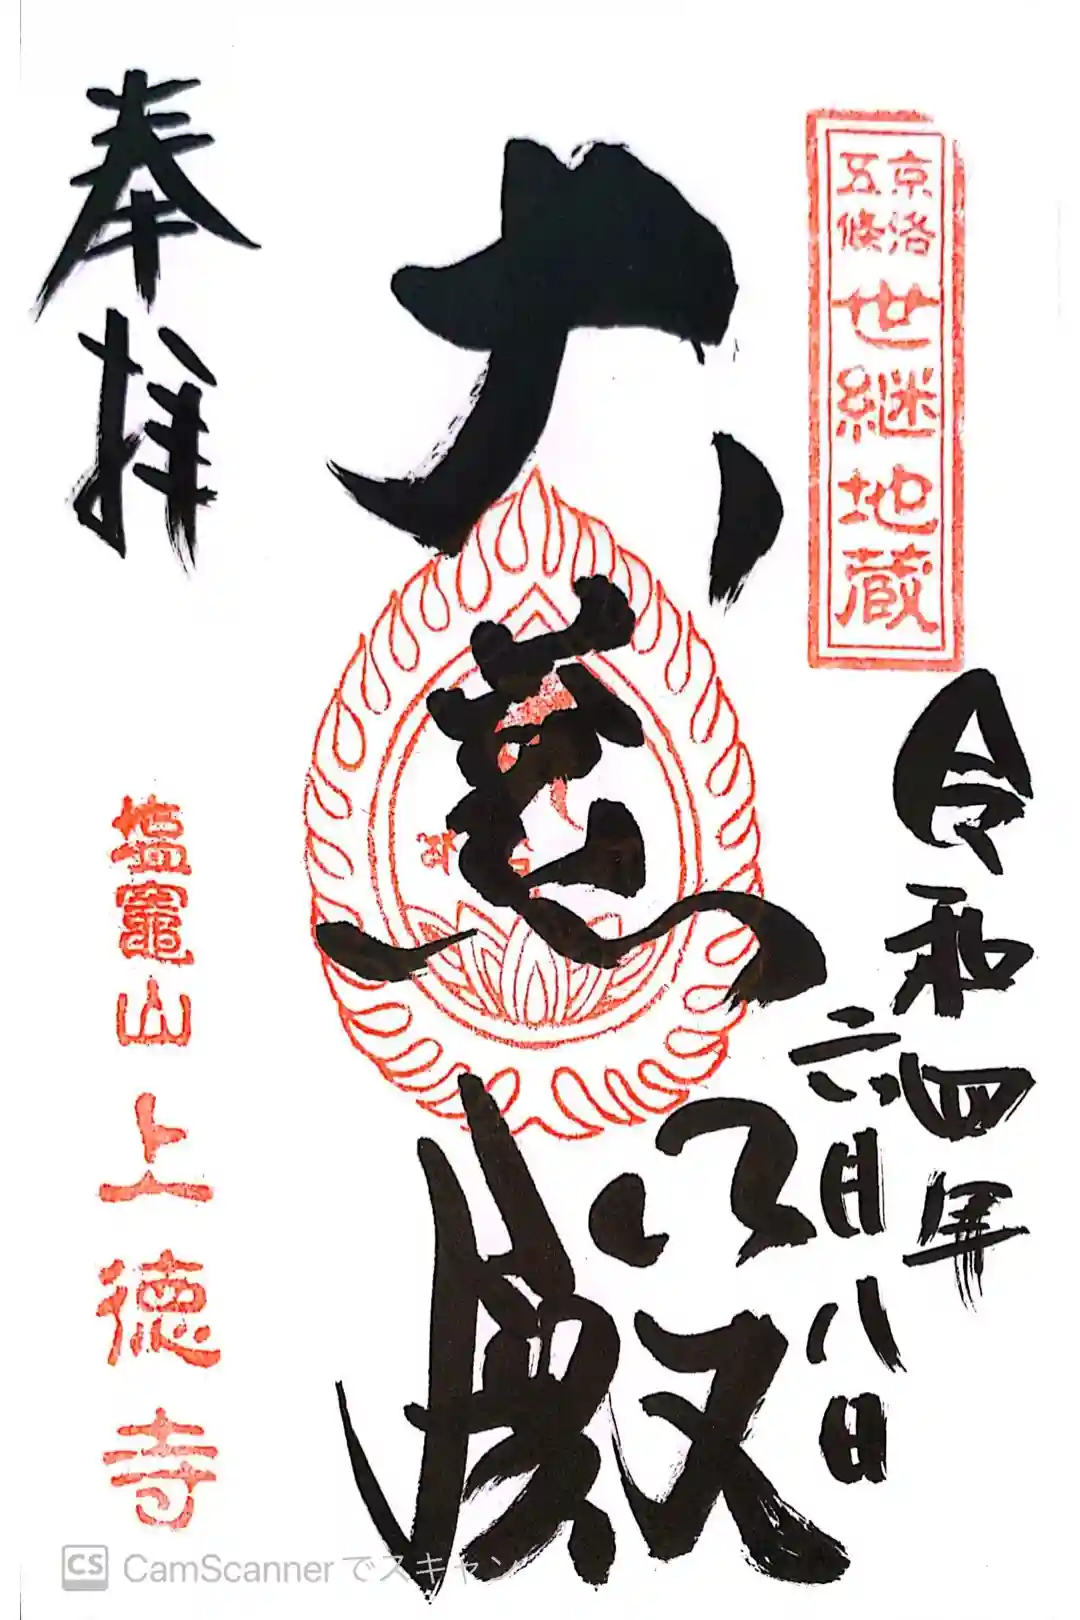 京洛
五條
世継地蔵
令和四年
六月八日
大悲殿
奉拝
塩竈山 上徳寺
CS CamScannerでスキャン